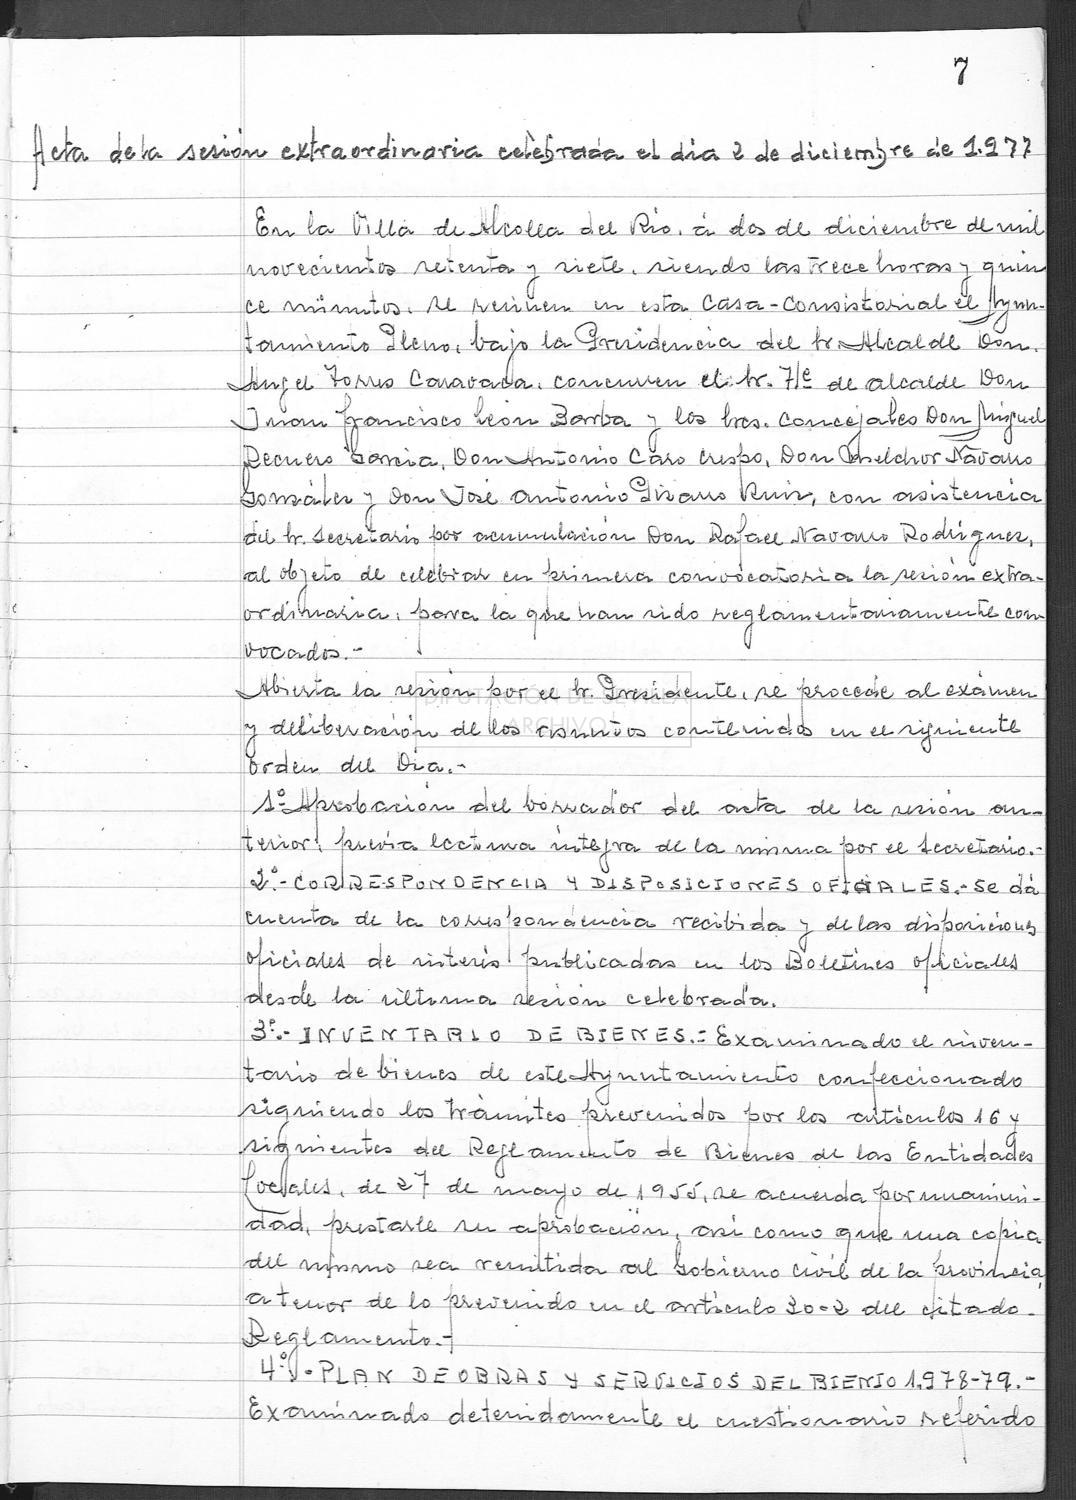 7
Acta de la sesión extraordinaria celebrada el dia 2 de diciembre de 1.977
En la Villa de Alcolea del Rio, á dos de diciembre de mil
novecientos setenta y siete, siendo las trece horas y quin
ce minutos, se reunen en esta Casa-Consistorial el Ayun-
tamiento Pleno, bajo la Presidencia del Sr. Alcalde Don
Angel Torres Caravaca, concurren el Sr. Tte de alcalde Don
Juan Francisco León Barba y los Sres. Concejales Don Miguel
Recuero Garcia, Don Antonio Caro Crespo, Don Melchor Navarro
González y Don José Antonio Pizarro Ruiz, con asistencia
del Sr. Secretario por acumulación Don Rafael Navarro Rodriguez,
al objeto de celebrar en primera convocatoria la sesión extra-
ordinaria, para la que han sido reglamentariamente con
vocados.-
Abierta la sesión por el Sr. Presidente, se procede al exámen
y deliberación de los asuntos contenidos en el siguiente
Orden del Dia.-
DIPUTACIÓN DE SEVILLA
ARCHIVO
1º Aprobación del borrador del acta de la sesión an-
terior, previa lectura íntegra de la misma por el Secretario.-
2º.- CORRESPONDENCIA Y DISPOSICIONES OFICIALES.- Se dá
cuenta de la correspondencia recibida y de las disposiciones
oficiales de interés publicadas en los Boletines oficiales
desde la última sesión celebrada.
3º.- INVENTARIO DE BIENES.- Examinado el inven-
tario de bienes de este Ayuntamiento confeccionado
siguiendo los trámites prevenidos por los artículos 16 y
siguientes del Reglamento de Bienes de las Entidades
Locales, de 27 de mayo de 1955, se acuerda por unanimi-
dad, prestarle su aprobación, asi como que una copia
del mismo sea remitida al Gobierno Civil de la provincia,
a tenor de lo prevenido en el artículo 30-2 del citado
Reglamento.-
4º.- PLAN DE OBRAS Y SERVICIOS DEL BIENIO 1.978-79.-
Examinado detenidamente el cuestionario referido